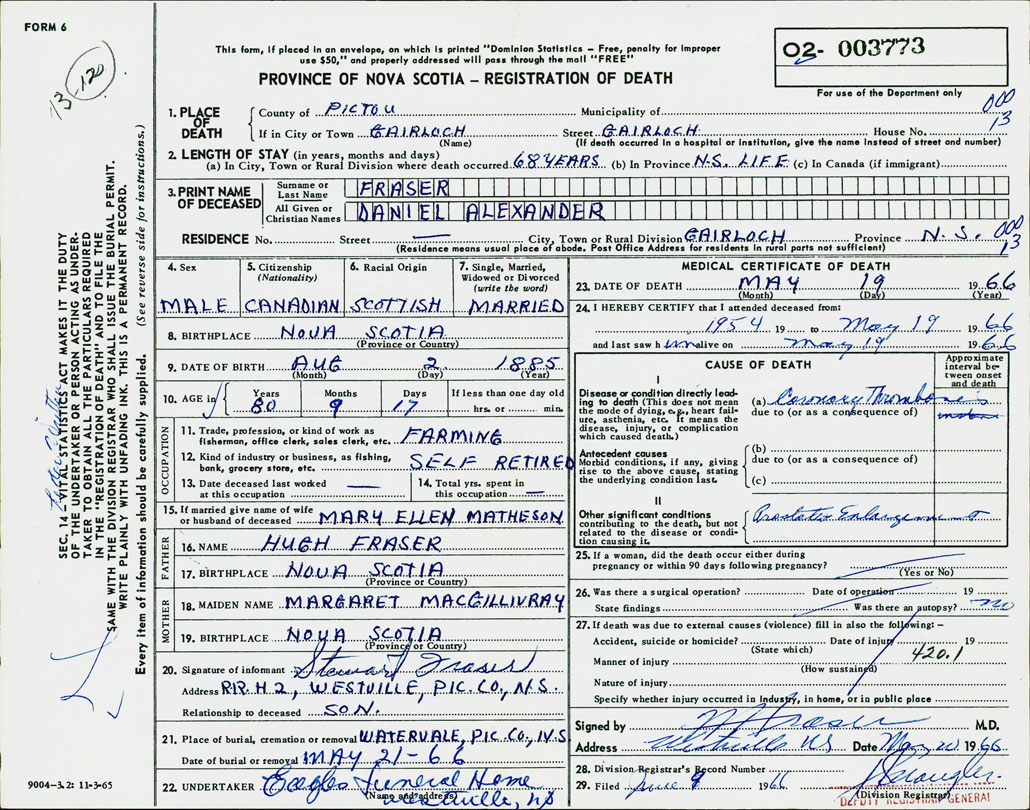 FORM 6
13-120
This form, if placed in an envelope, on which is printed "Dominion Statistics – Free, penalty for improper
use $50," and properly addressed will pass through the mail "FREE"
PROVINCE OF NOVA SCOTIA – REGISTRATION OF DEATH
02- 003773
For use of the Department only
1. PLACE OF DEATH
County of PICTOU Municipality of 000
If in City or Town GAIRLOCH Street GAIRLOCH House No. 13
(Name) (If death occurred in a hospital or institution, give the name instead of street and number)
2. LENGTH OF STAY (in years, months and days)
(a) In City, Town or Rural Division where death occurred 68 YEARS (b) In Province N.S. LIFE (c) In Canada (if immigrant)
3. PRINT NAME OF DECEASED
Surname or Last Name FRASER
All Given or Christian Names DANIEL ALEXANDER
RESIDENCE No. Street — City, Town or Rural Division GAIRLOCH Province N.S. 000 13
(Residence means usual place of abode. Post Office Address for residents in rural parts not sufficient)
4. Sex MALE
5. Citizenship (Nationality) CANADIAN
6. Racial Origin SCOTTISH
7. Single, Married, Widowed or Divorced (write the word) MARRIED
8. BIRTHPLACE NOVA SCOTIA
(Province or Country)
9. DATE OF BIRTH AUG 2 1885
(Month) (Day) (Year)
10. AGE in Years 80 Months 9 Days 17 If less than one day old hrs. or min.
OCCUPATION
11. Trade, profession, or kind of work as
fisherman, office clerk, sales clerk, etc. FARMING
12. Kind of industry or business, as fishing,
bank, grocery store, etc. SELF RETIRED
13. Date deceased last worked
at this occupation —
14. Total yrs. spent in
this occupation —
15. If married give name of wife
or husband of deceased MARY ELLEN MATHESON
FATHER
16. NAME HUGH FRASER
17. BIRTHPLACE NOVA SCOTIA
(Province or Country)
MOTHER
18. MAIDEN NAME MARGARET MACGILLIVRAY
19. BIRTHPLACE NOVA SCOTIA
(Province or Country)
20. Signature of informant Stewart Fraser
Address R.R.#2, WESTVILLE, PIC. CO., N.S.
Relationship to deceased SON.
21. Place of burial, cremation or removal WATERVALE, PIC. CO., N.S.
Date of burial or removal MAY 21-66
22. UNDERTAKER Eagles Funeral Home
(Name and address) Westville, NS
MEDICAL CERTIFICATE OF DEATH
23. DATE OF DEATH MAY 19 1966
(Month) (Day) (Year)
24. I HEREBY CERTIFY that I attended deceased from:
1954 19 to May 19 1966
and last saw him alive on May 19 1966
CAUSE OF DEATH
Approximate interval between onset and death
I
Disease or condition directly leading to death (This does not mean the mode of dying, e.g., heart failure, asthenia, etc. It means the disease, injury, or complication which caused death.)
(a) Coronary Thrombosis
due to (or as a consequence of)
Antecedent causes
Morbid conditions, if any, giving rise to the above cause, stating the underlying condition last.
(b)
due to (or as a consequence of)
(c)
II
Other significant conditions
contributing to the death, but not related to the disease or condition causing it.
Prostatic Enlargement
25. If a woman, did the death occur either during
pregnancy or within 90 days following pregnancy?
(Yes or No)
26. Was there a surgical operation? Date of operation 19
State findings Was there an autopsy? no
27. If death was due to external causes (violence) fill in also the following: –
Accident, suicide or homicide? Date of injury 19
(State which) 420.1
Manner of injury
(How sustained)
Nature of injury
Specify whether injury occurred in Industry, in home, or in public place
Signed by Fraser M.D.
Address Westville NS Date May 20 1966
28. Division Registrar's Record Number
29. Filed June 9 1966
(Division Registrar)
DEPUTY REGISTRAR GENERAL
SEC. 14 – VITAL STATISTICS ACT MAKES IT THE DUTY
OF THE UNDERTAKER OR PERSON ACTING AS UNDER-
TAKER TO OBTAIN ALL THE PARTICULARS REQUIRED
IN THE "REGISTRATION OF DEATH" AND TO FILE THE
SAME WITH THE DIVISION REGISTRAR WHO SHALL ISSUE THE BURIAL PERMIT.
WRITE PLAINLY WITH UNFADING INK. THIS IS A PERMANENT RECORD.
Every item of information should be carefully supplied. (See reverse side for instructions.)
9004-3.2: 11-3-65